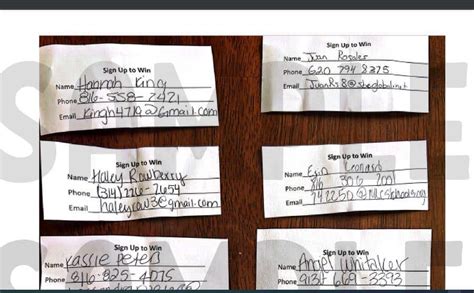 SAMPLE
Sign Up to Win
Name Hannah King
Phone 816-558-7421
Email Kingh4719@Gmail.com
Sign Up to Win
Name Juan Rosales
Phone 620 794 8375
Email JuanR58@sbcglobal.net
Sign Up to Win
Name Haley Rowberry
Phone (314) 226-2654
Email haleyrow3@gmail.com
Sign Up to Win
Name Erin
Phone 816 306 2001
Email
Sign Up to Win
Name Kassie Peters
Phone 816-825-4075
Sign Up to Win
Name Angel Whitaker
Phone 913-669-3393
SAMPLE